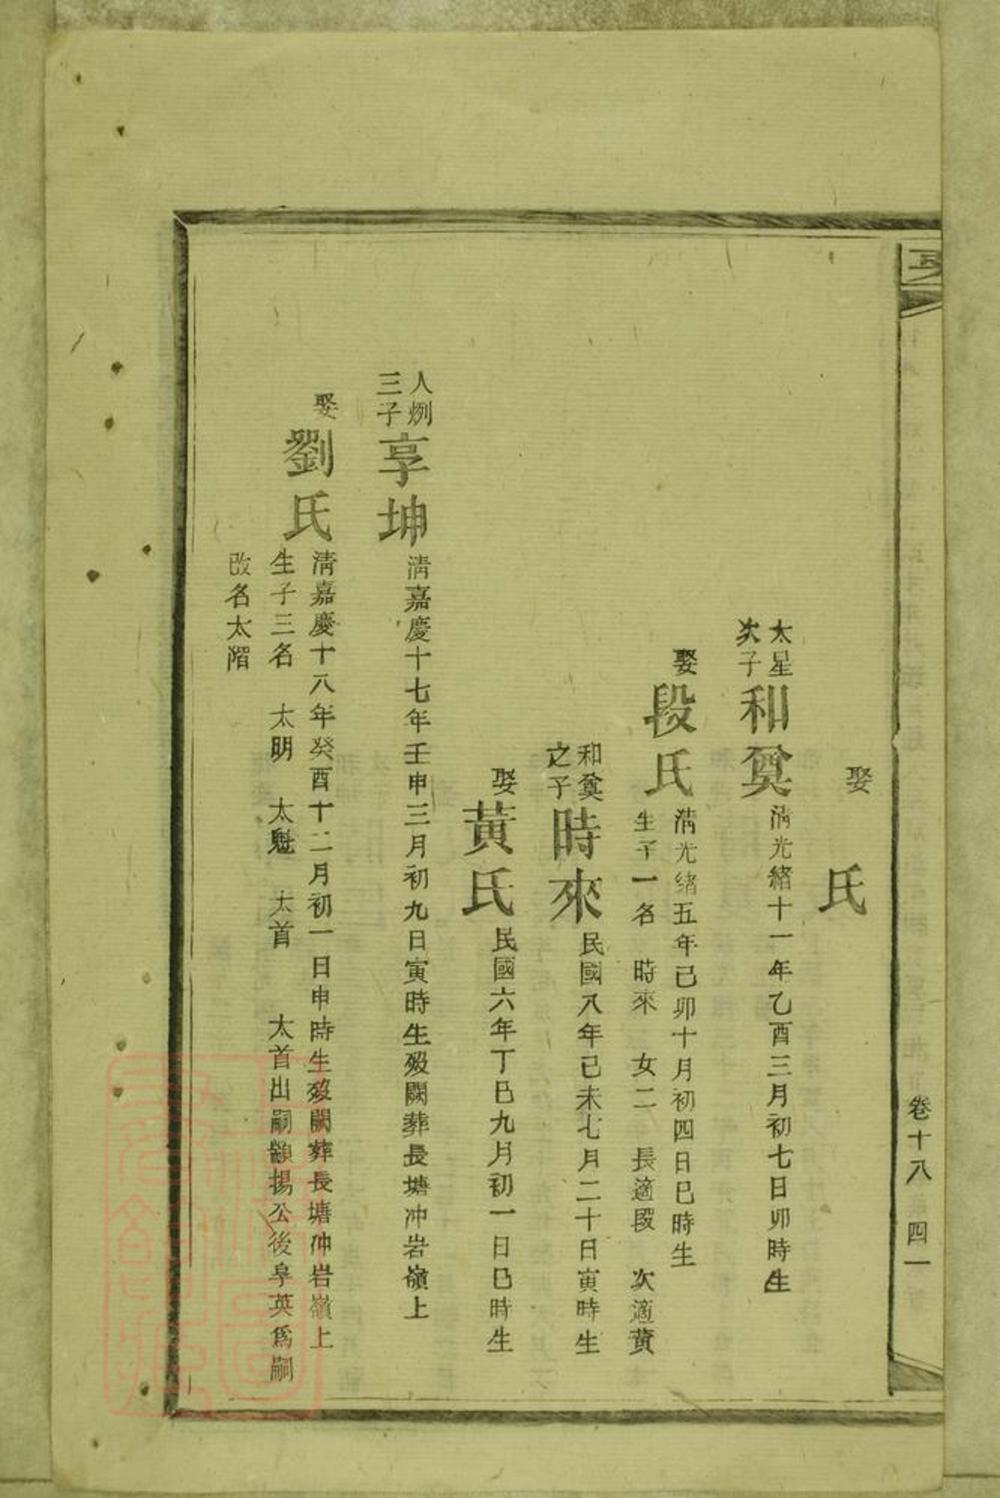 娶 氏
太星次子 和奠 清光緒十一年乙酉三月初七日卯時生
娶 段氏 清光緒五年己卯十月初四日巳時生
生子一名 時來 女二 長適段 次適黄
和奠之子 時來 民國八年己未七月二十日寅時生
娶 黃氏 民國六年丁巳九月初一日巳時生
人烈三子 享坤 清嘉慶十七年壬申三月初九日寅時生歿闕葬長塘冲岩嶺上
娶 劉氏 清嘉慶十八年癸酉十二月初一日申時生歿闕葬長塘冲岩嶺上
生子三名 太明 太魁 太首 太首出嗣顯揚公後阜英爲嗣
改名太階
卷十八 四一